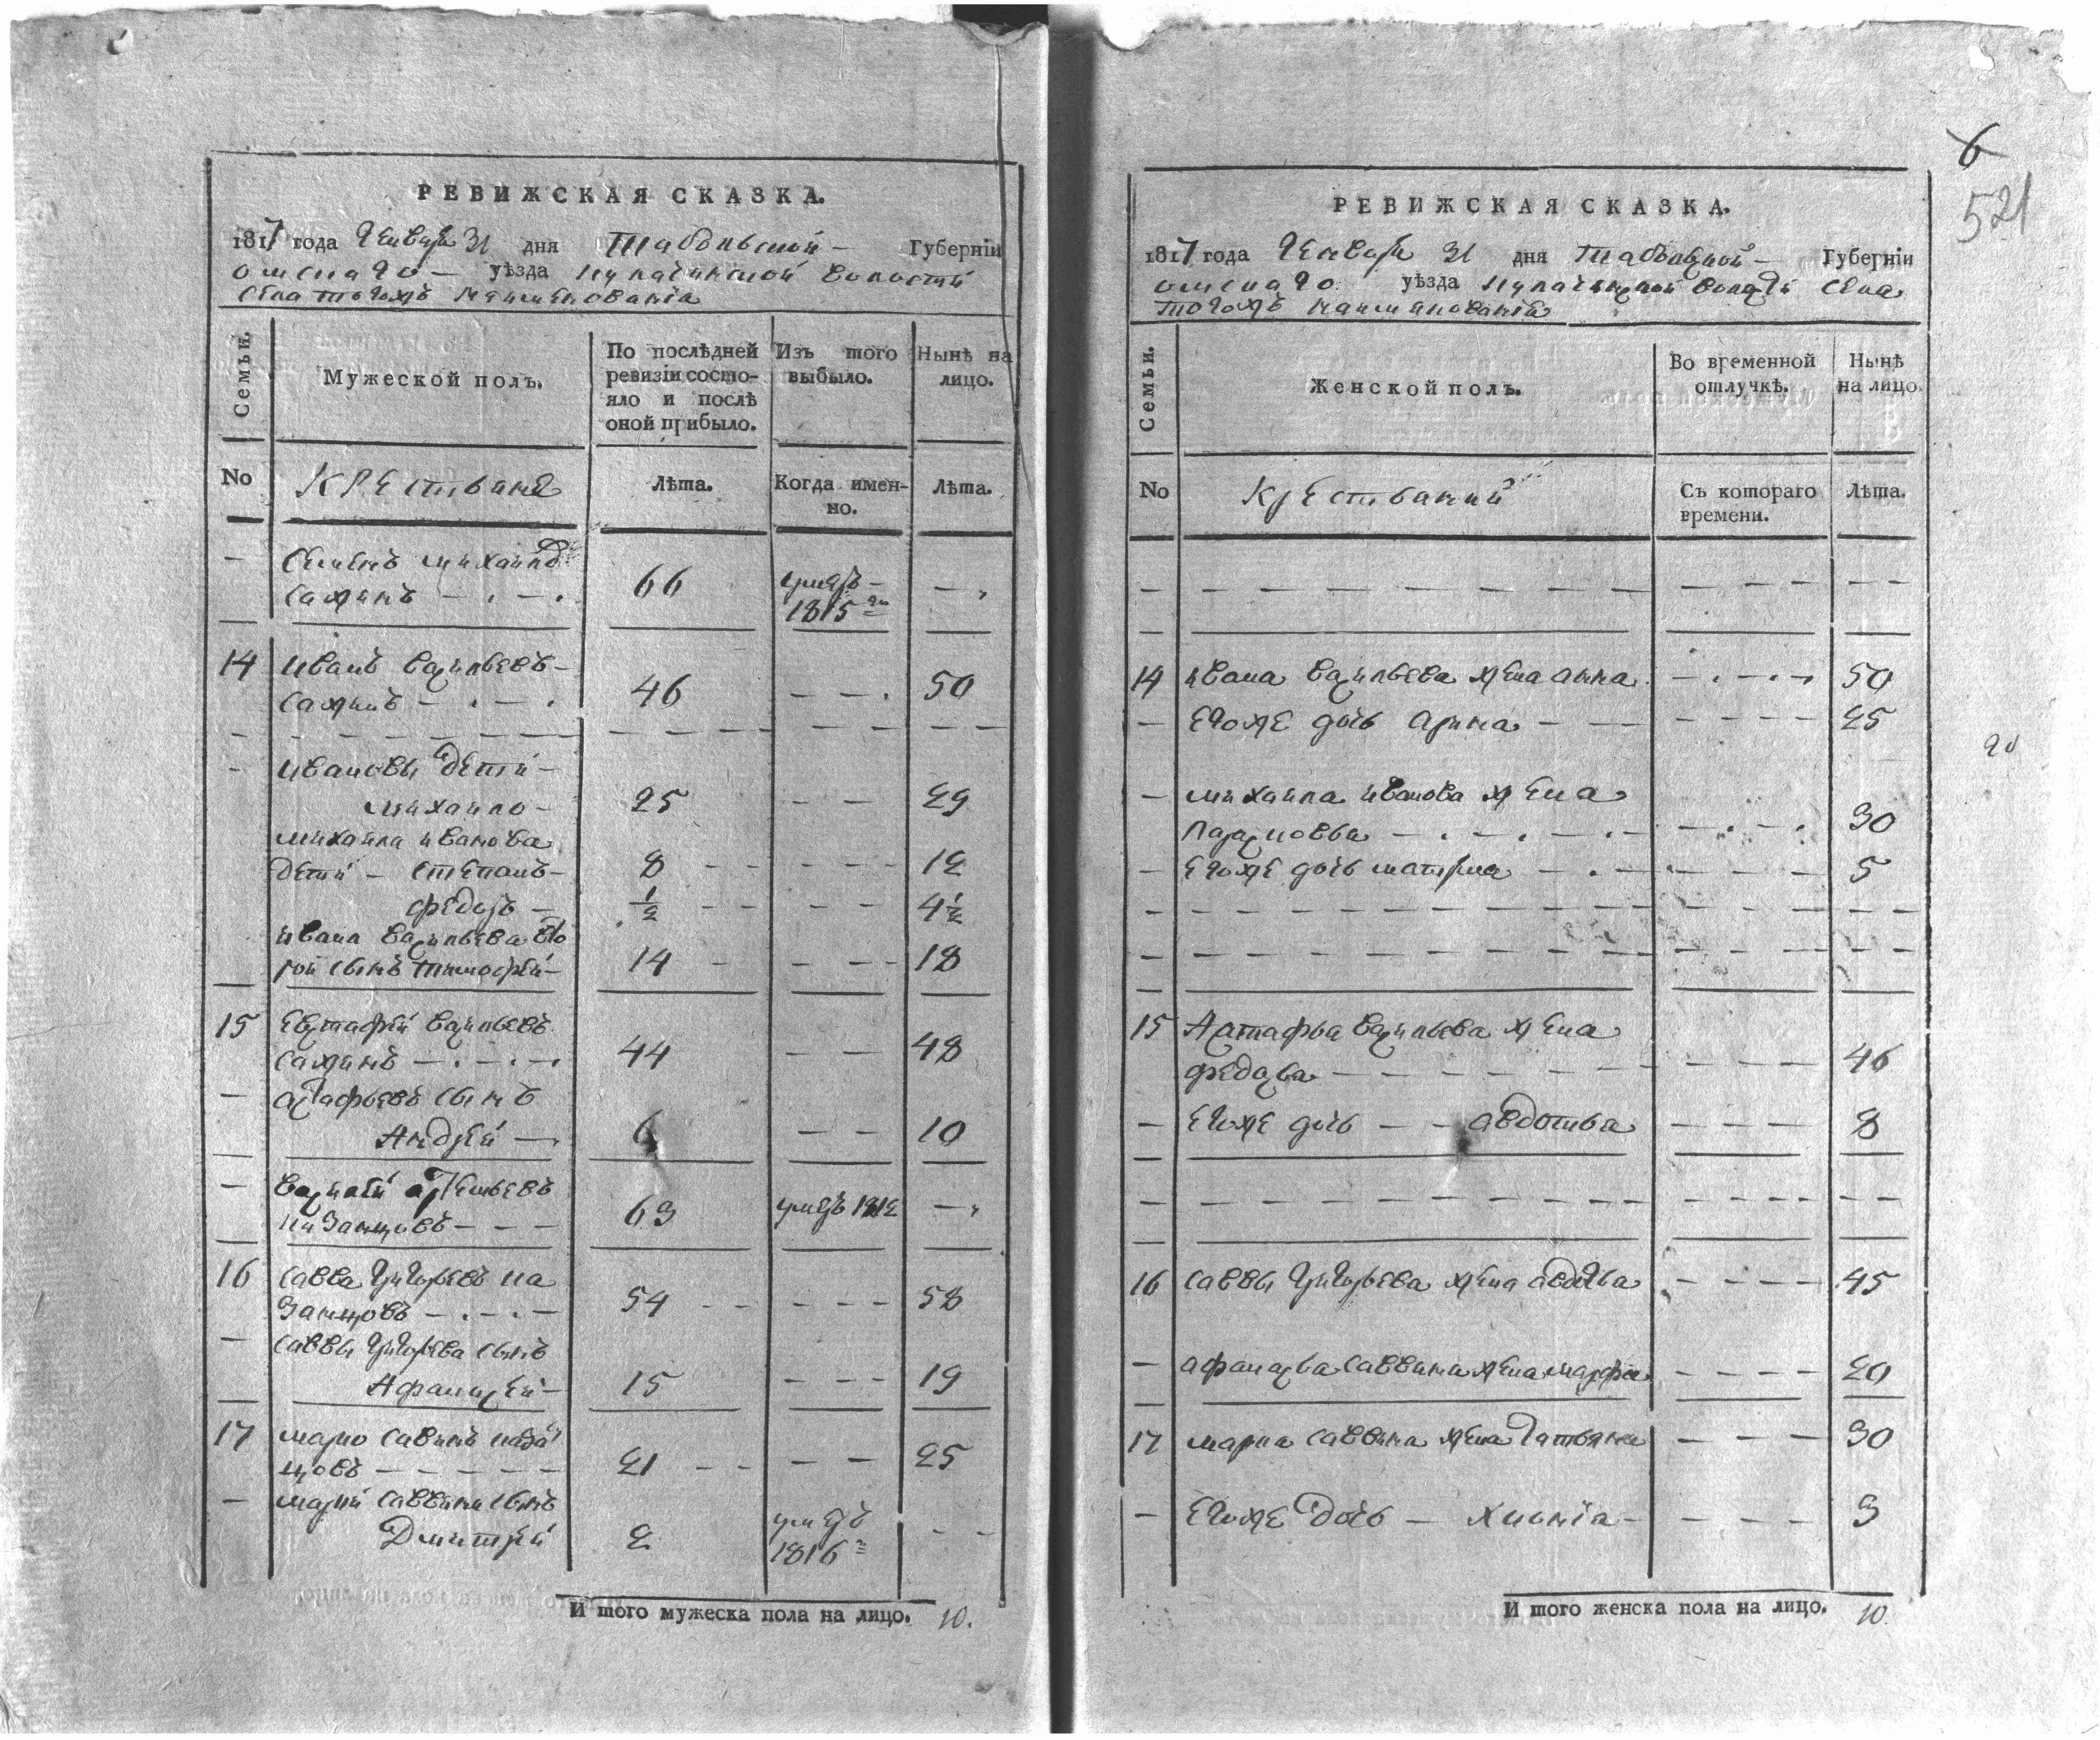 РЕВИЖСКАЯ СКАЗКА.
1817 года Генваря 31 дня Тобольской Губерніи
омскаго уѣзда кулачинской волости
села тогожъ наименованія
Семьи.
Мужеской полъ.
По послѣдней
ревизіи состо-
яло и послѣ
оной прибыло.
Изъ того
выбыло.
Нынѣ на
лицо.
No
Крестьяне
Лѣта.
Когда имен-
но.
Лѣта.
Семенъ михайлов
Сажинъ 66 умеръ
1815
14 Иванъ Васильевъ
Сажинъ 46 50
Ивановы дети
михайло 25 29
михайла иванова
дети Степанъ 8 12
федоръ ½ 4½
ивана Васильева вто
рой сынъ тимофей 14 18
15 Евстафей Васильевъ
Сажинъ 44 48
астафьевъ сынъ
Андрей 6 10
Василей
63 умеръ 1812
16 Савва Григорьевъ ка
занцовъ 54 58
Саввы Григорьева сынъ
Афанасей 15 19
17 марко Савинъ казан
цовъ 21 25
марки Саввина сынъ
Дмитрей 2 умеръ
1816
И того мужеска пола на лицо. 10.
6
521
РЕВИЖСКАЯ СКАЗКА.
1817 года Генваря 31 дня Тобольской Губерніи
омскаго уѣзда кулачинской волости села
тогожъ наименованія
Семьи.
Женской полъ.
Во временной
отлучкѣ.
Нынѣ
на лицо.
No
Съ котораго
времени.
Лѣта.
14 ивана Васильева жена анна 50
Егоже дочь Арина 25
михайла иванова жена
30
Егоже дочь матрена 5
15 Астафья Васильева жена
федосья 46
Егоже дочь авдотья 8
16 Саввы Григорьева жена авдотья 45
афанасья Саввина жена марфа 20
17 марка Саввина жена татьяна 30
Егоже дочь 3
И того женска пола на лицо. 10.